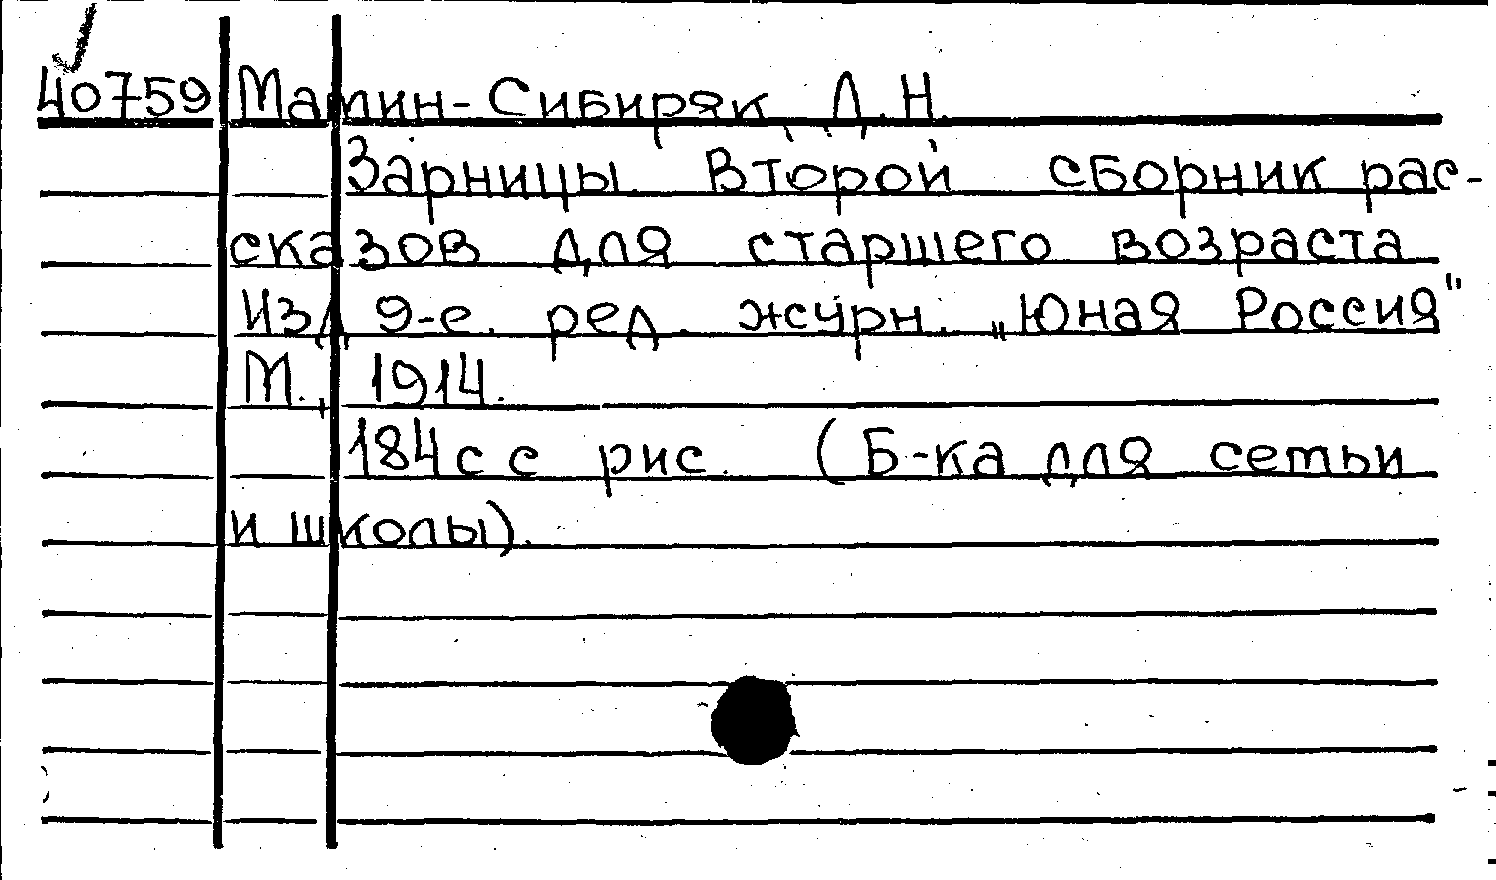 40759 Мамин-Сибиряк, Д.Н.
Зарницы. Второй сборник рас-
сказов для старшего возраста.
Изд. 9-е. ред. журн. „Юная Россия"
М., 1914.
184с. с рис. (Б-ка для семьи
и школы).